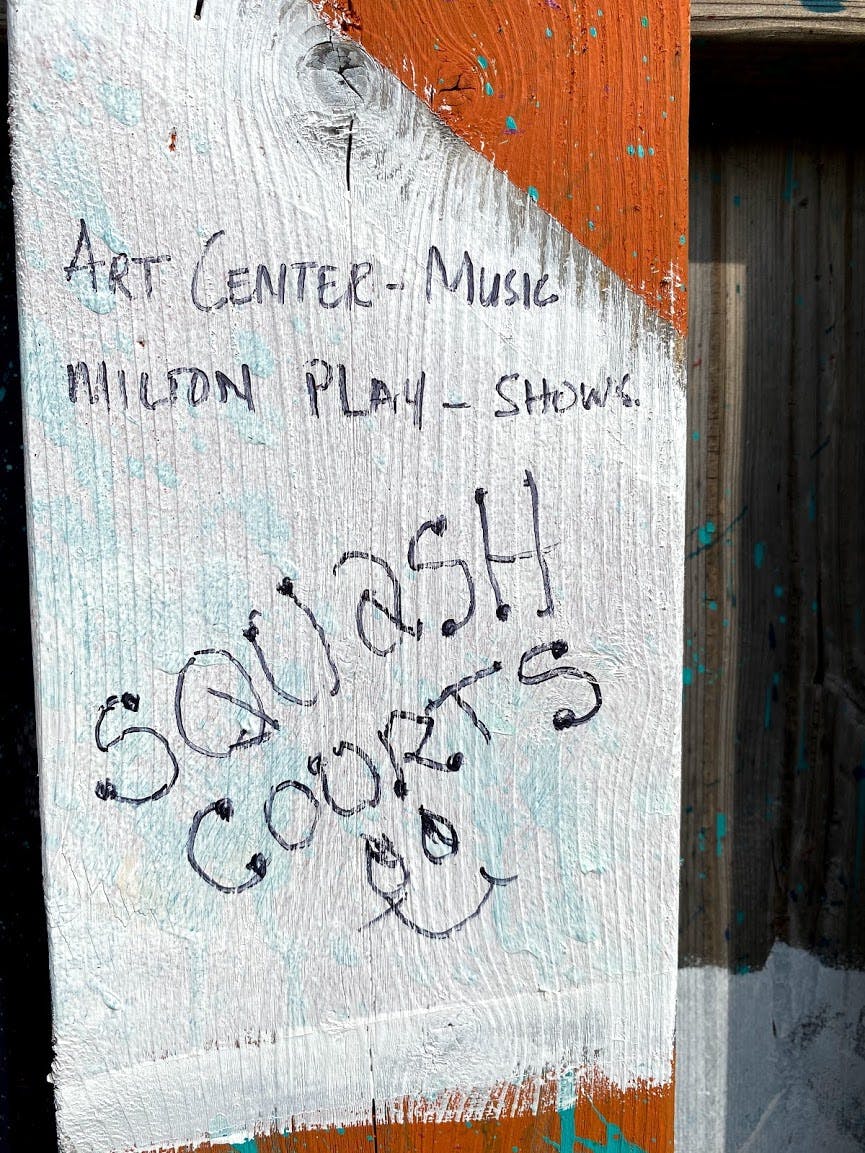 ART CENTER - MUSIC
MILTON PLAY - SHOWS.
SQUaSH
COURTS